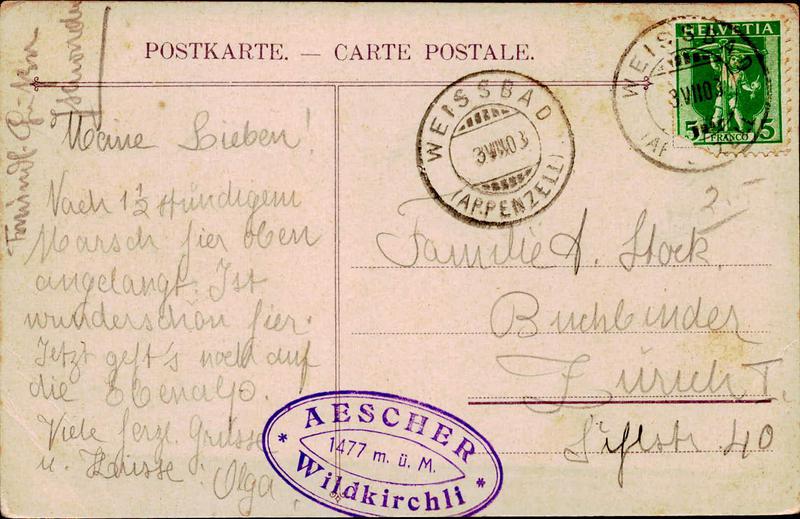 POSTKARTE. — CARTE POSTALE.
HELVETIA
5 FRANCO 5
WEISSBAD
3.VIII.03
(APPENZELL)
WEISSBAD
3.VIII.03
(AP
2.-
Meine Lieben!
Nach 1½ stündigem
Marsch hier oben
angelangt. Ist
wunderschön hier.
Jetzt geht's noch auf
die Ebenalp.
Viele herzl. Grüsse
u. Küsse Olga
Familie A. Stock.
Buchbinder
Zürich I.
Sihlstr. 40
AESCHER
1477 m. ü. M.
* Wildkirchli *